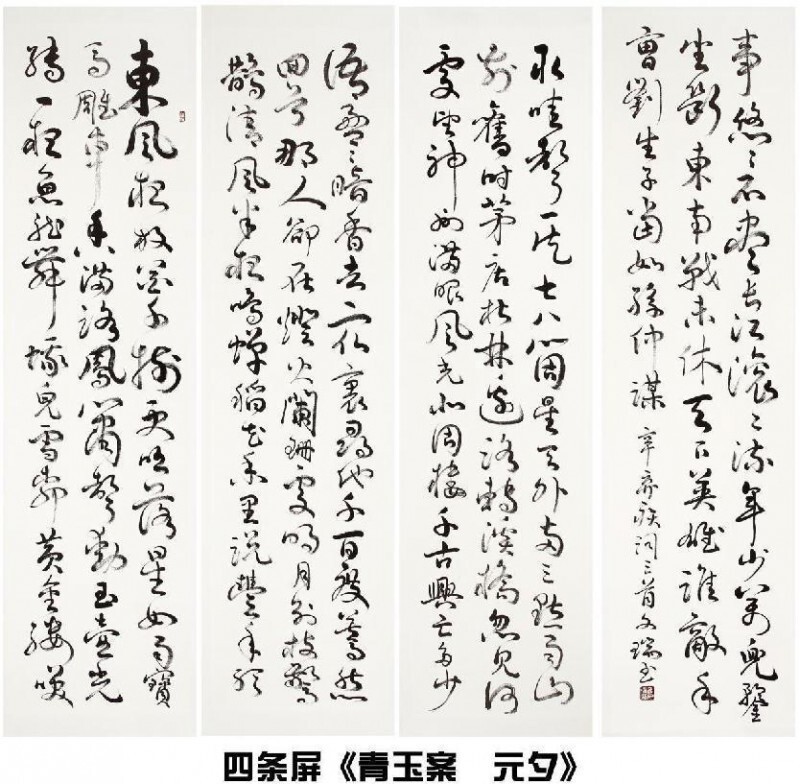 東風夜放花千樹更吹落星如雨寶
馬雕車香滿路鳳簫聲動玉壺光
轉一夜魚龍舞蛾兒雪柳黃金縷笑
語盈々暗香去眾裏尋他千百度驀然
回首那人卻在燈火闌珊處明月別枝驚
鵲清風半夜鳴蟬稻花香里說豐年聽
取蛙聲一片七八個星天外兩三點雨山
前舊時茅店社林邊路轉溪橋忽見何
處望神州滿眼風光北固樓千古興亡多少
事悠々不盡長江滾々流年少萬兜鍪
坐斷東南戰未休天下英雄誰敵手
曹劉生子當如孫仲謀 辛棄疾詞三首文瑞書
四条屏《青玉案 元夕》